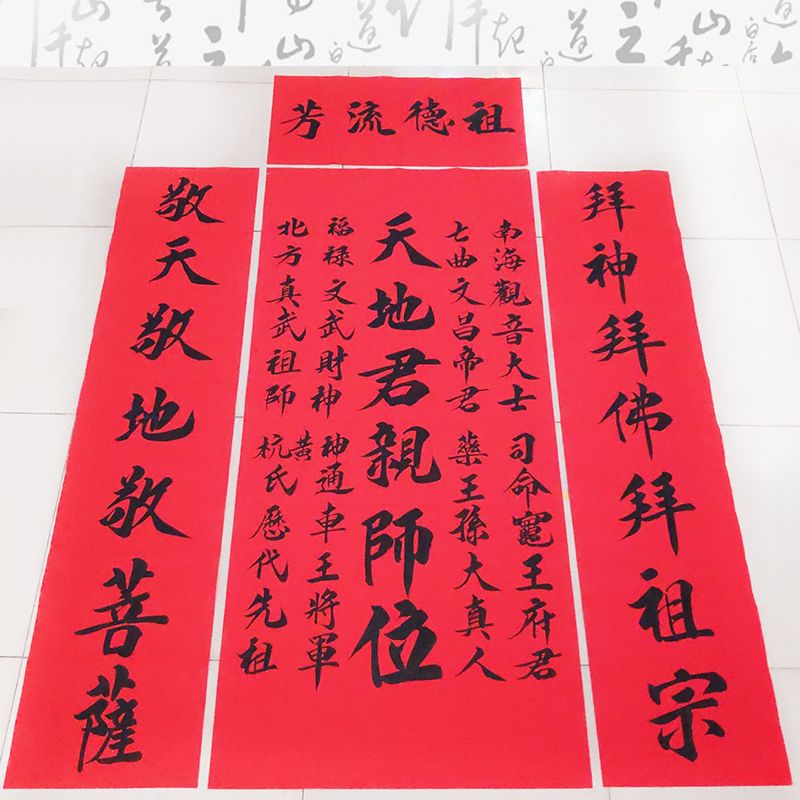 祖德流芳
拜神拜佛拜祖宗
南海觀音大士 司命竈王府君
七曲文昌帝君 藥王孫大真人
天地君親師位
福禄文武財神 神通車王將軍
北方真武祖師 黃杭氏歷代先祖
敬天敬地敬菩薩